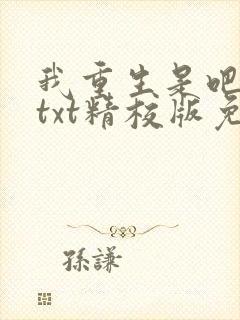 我重生呆吧
txt精校版免
孫謙